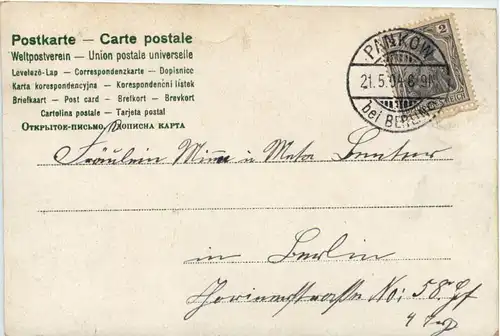 Postkarte – Carte postale
Weltpostverein – Union postale universelle
Levelező-Lap – Correspondenzkarte – Dopisnice
Karta korespondencyjna – Korespondenční lístek
Briefkaart – Post card – Brefkort – Brevkort
Cartolina postale – Tarjeta postal
Открытое-письмо, Дописна карта
PANKOW
21.5.04
bei BERLIN
2
REICH
Fräulein u Meta
in Berlin
No: 58. Hf
4 Trp